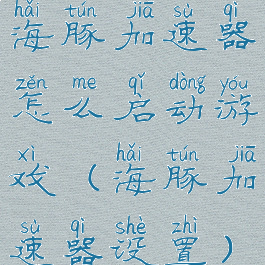 hǎi tún jiā sù qì
海豚加速器
zěn me qǐ dòng yóu
怎么启动游
xì ( hǎi tún jiā
戏(海豚加
sù qì shè zhì )
速器设置)